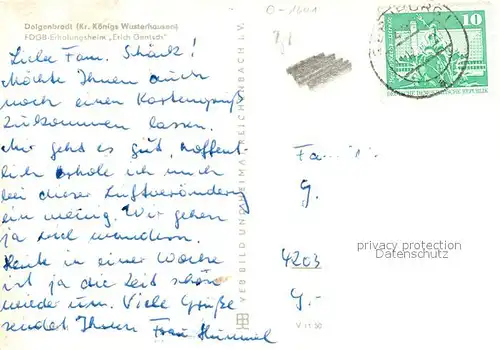 Dolgenbrodt (Kr. Königs Wusterhausen)
FDGB-Erholungsheim „Erich Gentsch"
Liebe Fam. Schänk!
Möchte Ihnen auch
noch einen Kartengruß
zukommen lassen.
Mir geht es gut, hoffent-
lich erhole ich mich
bei dieser Luftveränderung
ein wenig. Wir gehen
ja viel wandern.
Heute in einer Woche
ist ja die Zeit schon
wieder um. Viele Grüße
sendet Ihnen Frau Hummel
VEB BILD UND HEIMAT REICHENBACH I. V.
V 11 50
0-1601
10
DEUTSCHE DEMOKRATISCHE REPUBLIK
Fa
G.
privacy protection
Datenschutz
4203
G.-